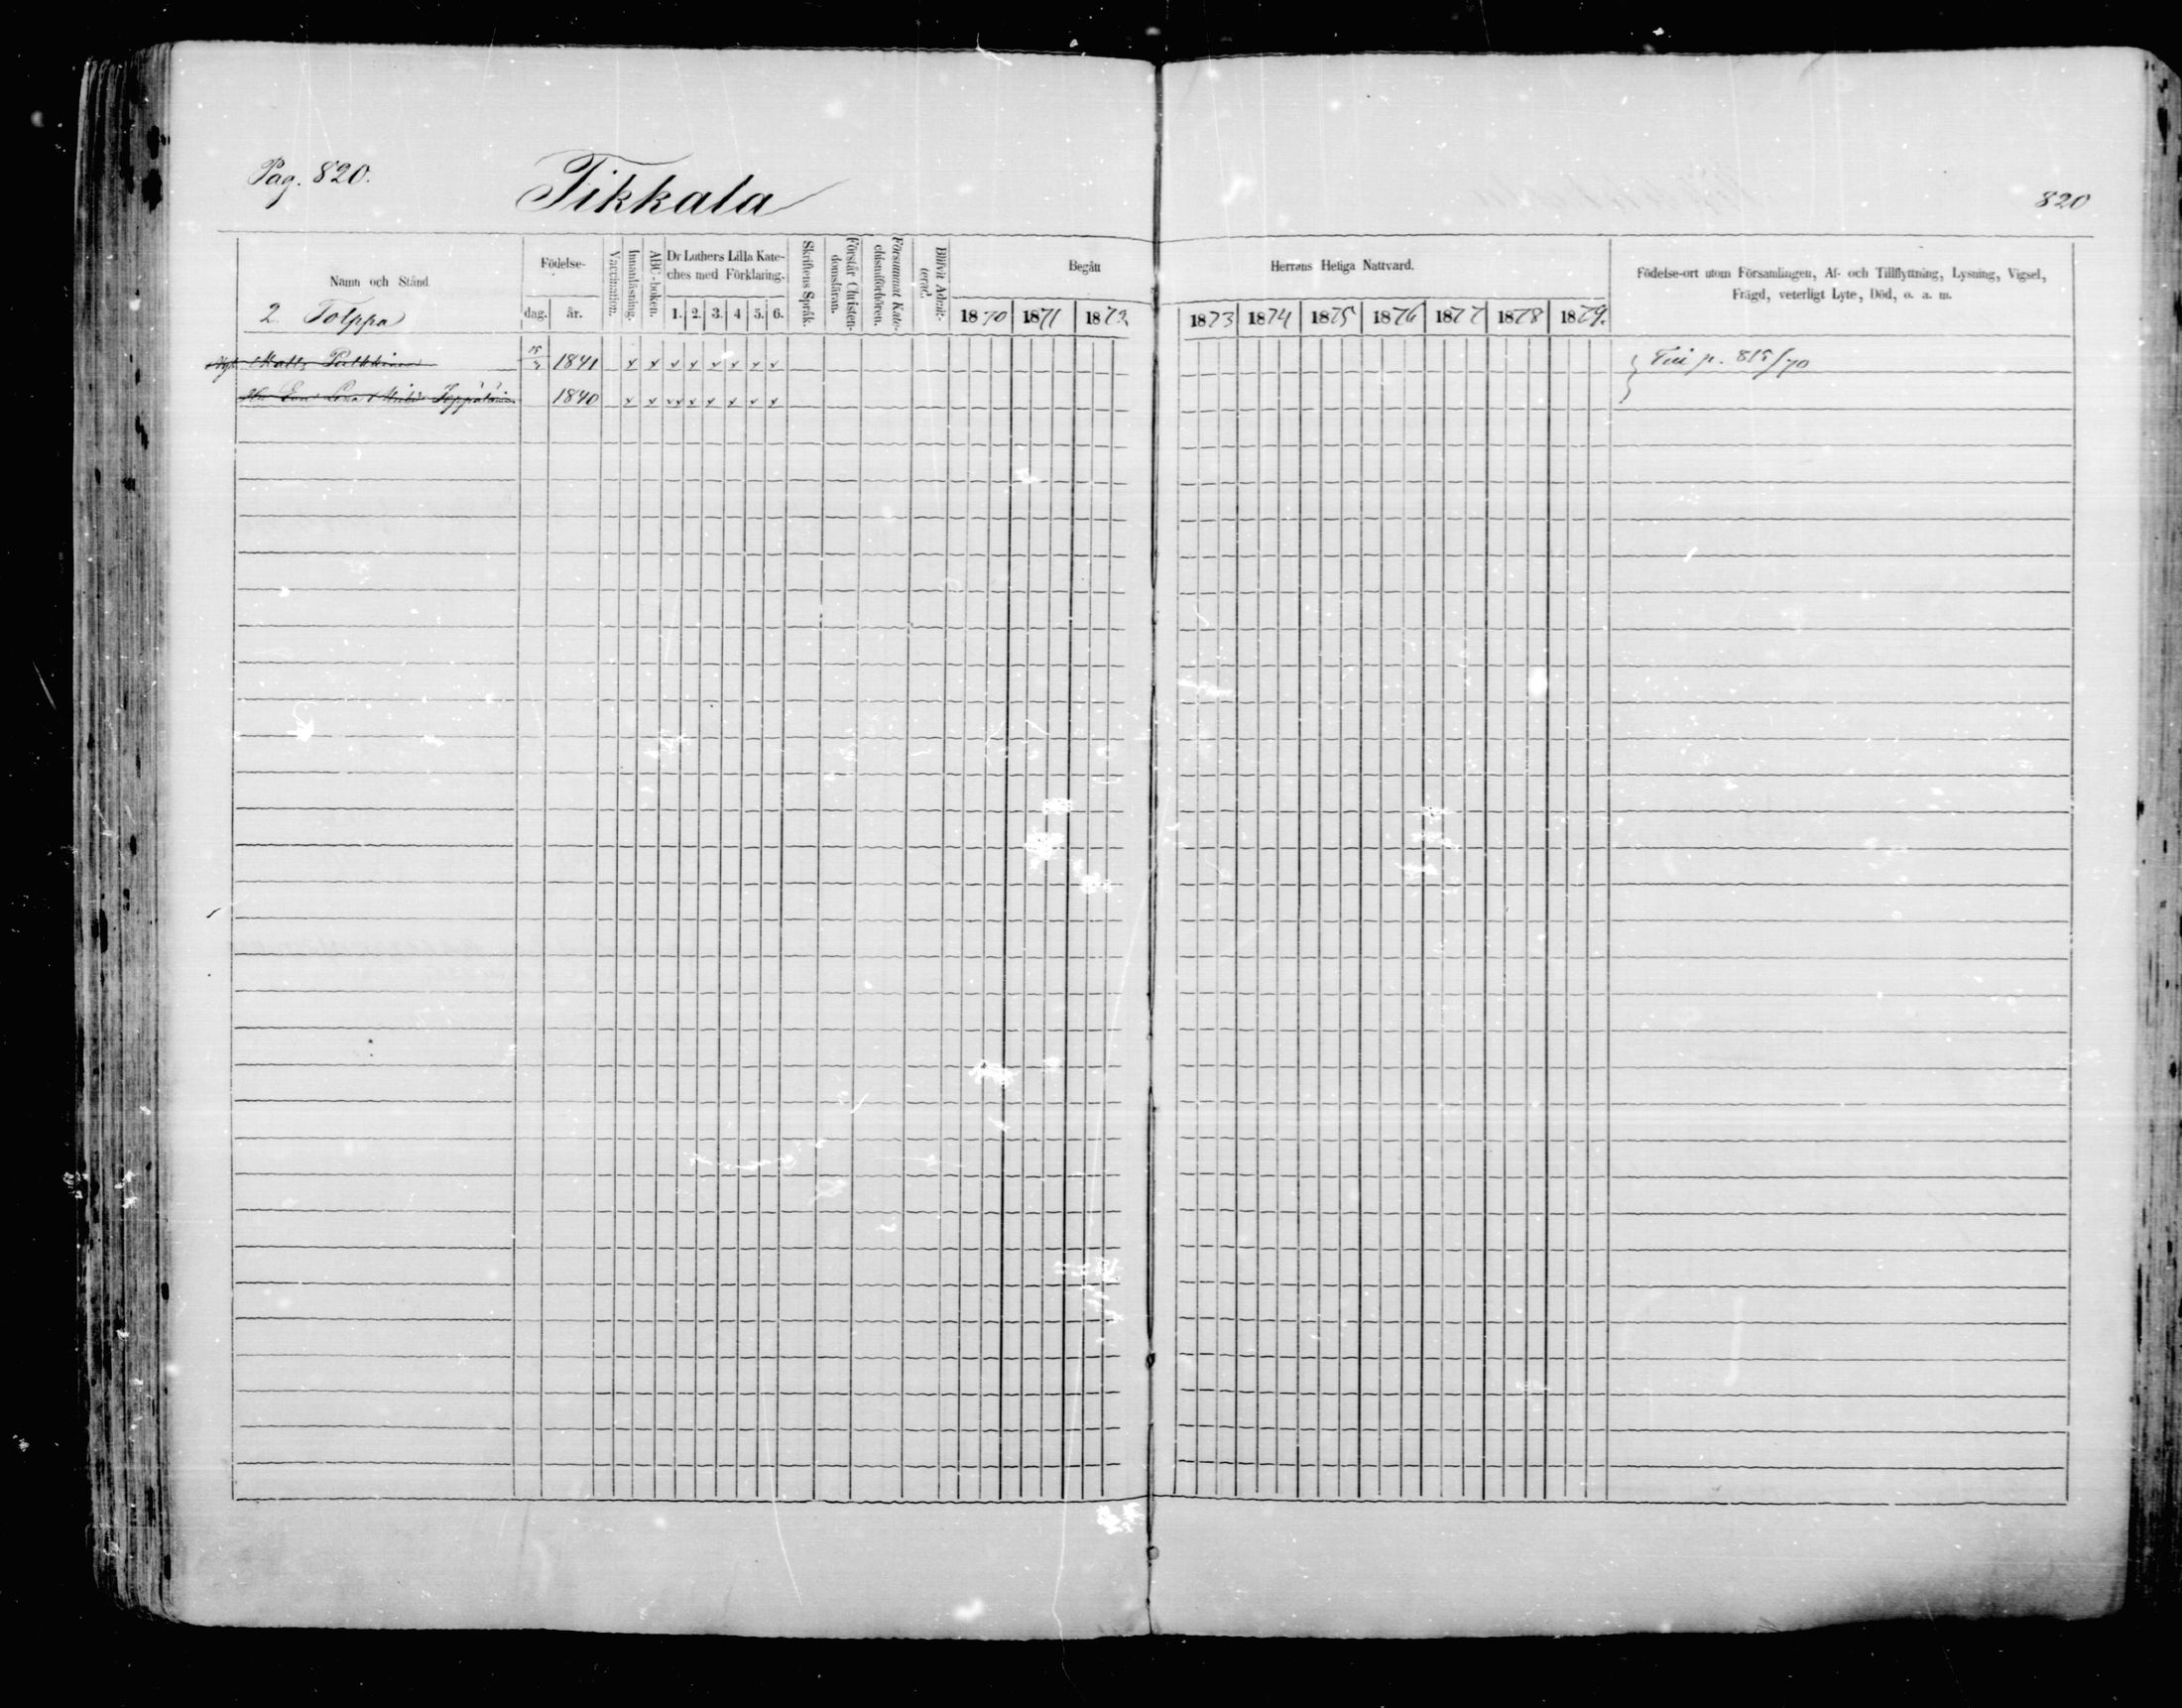 Pag. 820.
Tikkala
820
Namn och Stånd
Födelse-
dag. år.
Vaccination.
Innanläsning.
ABC-boken.
Dr Luthers Lilla Kate-
ches med Förklaring.
1. 2. 3. 4 5. 6.
Skriftens Språk.
Förstår Christen-
domsläran.
Försummat Kate-
chismiförhören.
Blifvit Admit-
terad.
Begått Herrans Heliga Nattvard.
1870 1871 1872 1873 1874 1875 1876 1877 1878 1879.
Födelse-ort utom Församlingen, Af- och Tillflyttning, Lysning, Vigsel,
Frägd, veterligt Lyte, Död, o. a. m.
2. Tolppa
Matts 1841 x x x x x x x x
p. 815/70
Eva Lena 1840 x x x x x x x x x